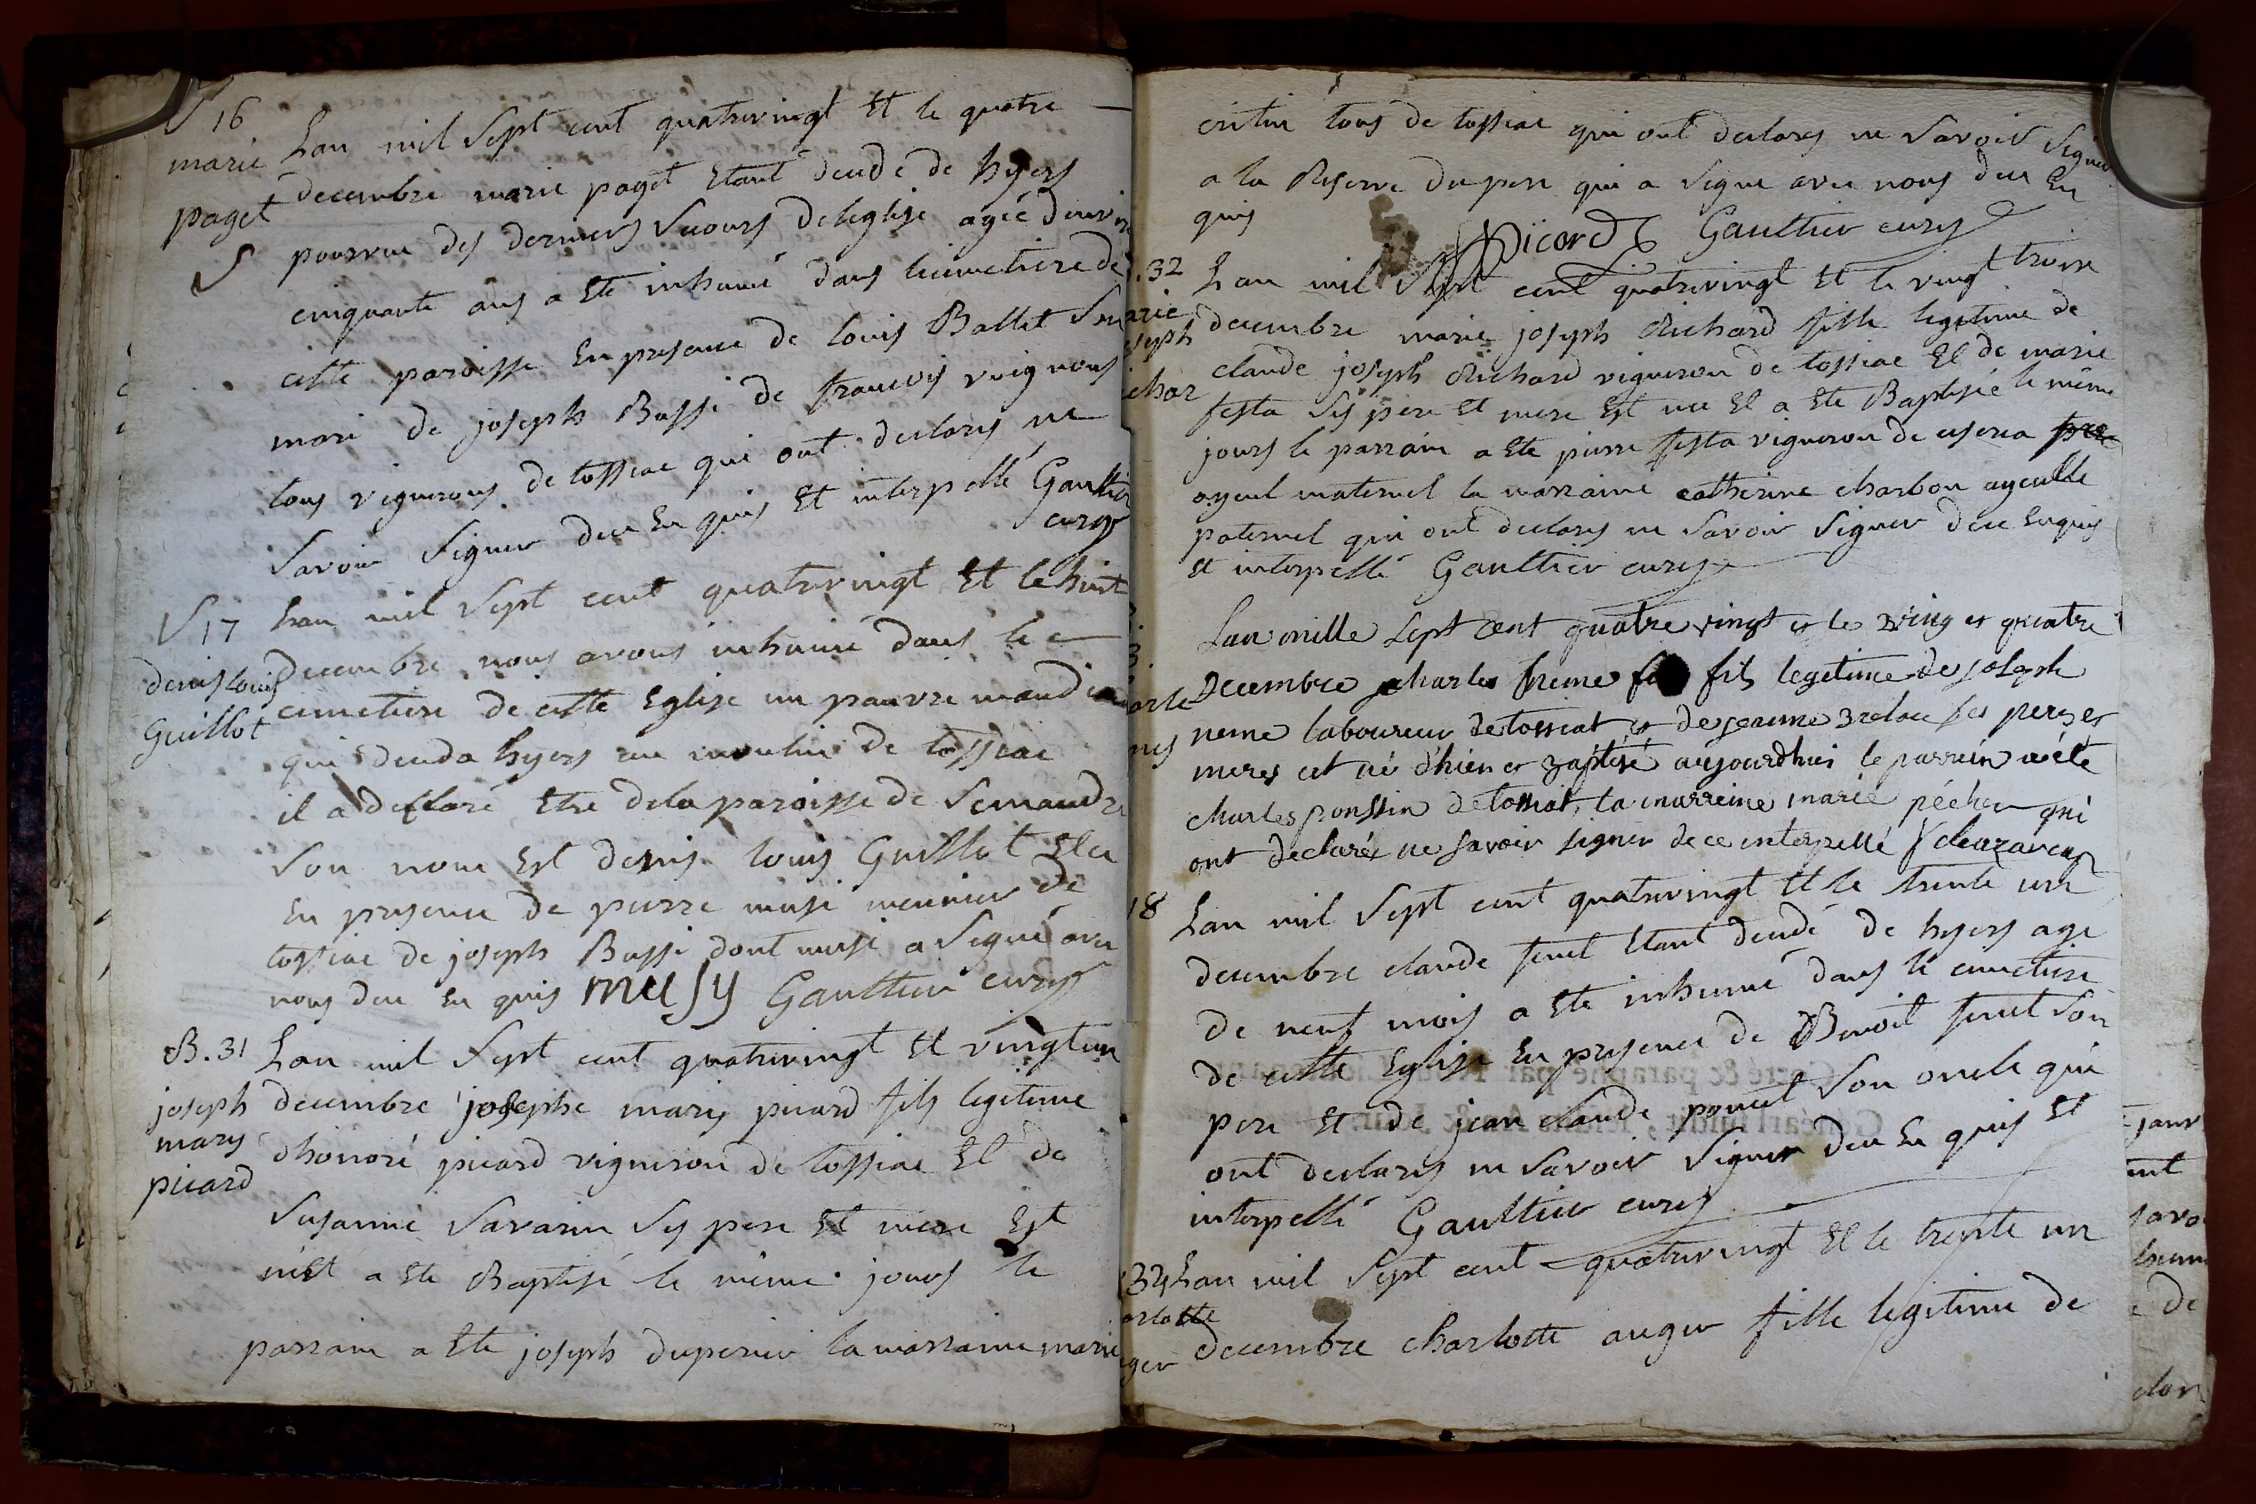 S 16
marie
paget
S
Lan mil Sept cent quatrevingt Et le quatre
decembre marie paget Etant decede de hyers
pourvue des derniers Secours de leglise agée denviron
cinquante ans a Ete inhumé dans licimetiere de
cette paroisse En presence de louis Ballet Son
mari de joseph Bussi de francois
tous vignerons de tossiac qui ont declarez ne
Savoir Signer deu En quis Et interpellé Gaultier
curez
S 17
denis louis
Guillot
Lan mil Sept cent quatrevingt Et le huit
decembre nous avons inhumé dans le
cimetiere de cette Eglise un pauvre mandiant
qui deceda hyers au moulin de tossiac
il a declaré Etre dela paroisse de Semandre
Son nom Est denis louis Guillot Et ce
En presence de pierre musi meunier de
tossiac de joseph Bussi dont musi a Signé avec
nous deu En quis musy Gaultier curez
B. 31
joseph
mary
picard
Lan mil Sept cent quatrevingt Et vingt un
decembre josephe marie picard fils legitime
dhonoré picard vigneron de tossiac Et de
Susanne Savarin Ses pere Et mere Est
né Et a Ete Baptisé le même jours le
parrain a Ete joseph duperier la marraine marie
critin tous de tossiac qui ont declarez ne Savoir Signer
a la Reserve du pere qui a Signe avec nous deu En
quis
Picard Gaultier curez
. 32
arie
oseph
ichar
Lan mil Sept cent quatrevingt Et le vingt trois
decembre marie joseph Richard fille legitime de
claude joseph Richard vigneron de tossiac Et de marie
festa Ses pere Et mere Est née Et a Ete Baptisée le même
jours le parrain a Ete pierre festa vigneron de
ayeul maternel la marraine catherine charbon ayeulle
paternel qui ont declarez ne Savoir Signer deu Enquis
Et interpellé Gaultier curez
3.
arle
nes
Lan mille Sept cent quatre vingt et le ving et quatre
Decembre charles neme fils legitime de joseph
neme laboureur de tossiat et de jeanne ses peres et
meres est né d'hier et baptisé aujourdhui le parrein a été
charles ponssin de tossiat, la marreine marie péchou qui
ont declarés ne savoir signer de ce interpellé
18
Lan mil Sept cent quatrevingt Et le trente un
decembre claude feuil Etant decedé de hyers age
de neuf mois a Ete inhumé dans le cimetiere
de cette Eglise En presence de Benoit feuil Son
pere Et de jean claude poncet Son oncle qui
ont declarez ne Savoir Signer deu En quis Et
interpellé Gaultier curez
34
arlotte
ger
Lan mil Sept cent quatrevingt Et le trente un
decembre charlotte auger fille legitime de
janv
ent
savo
de